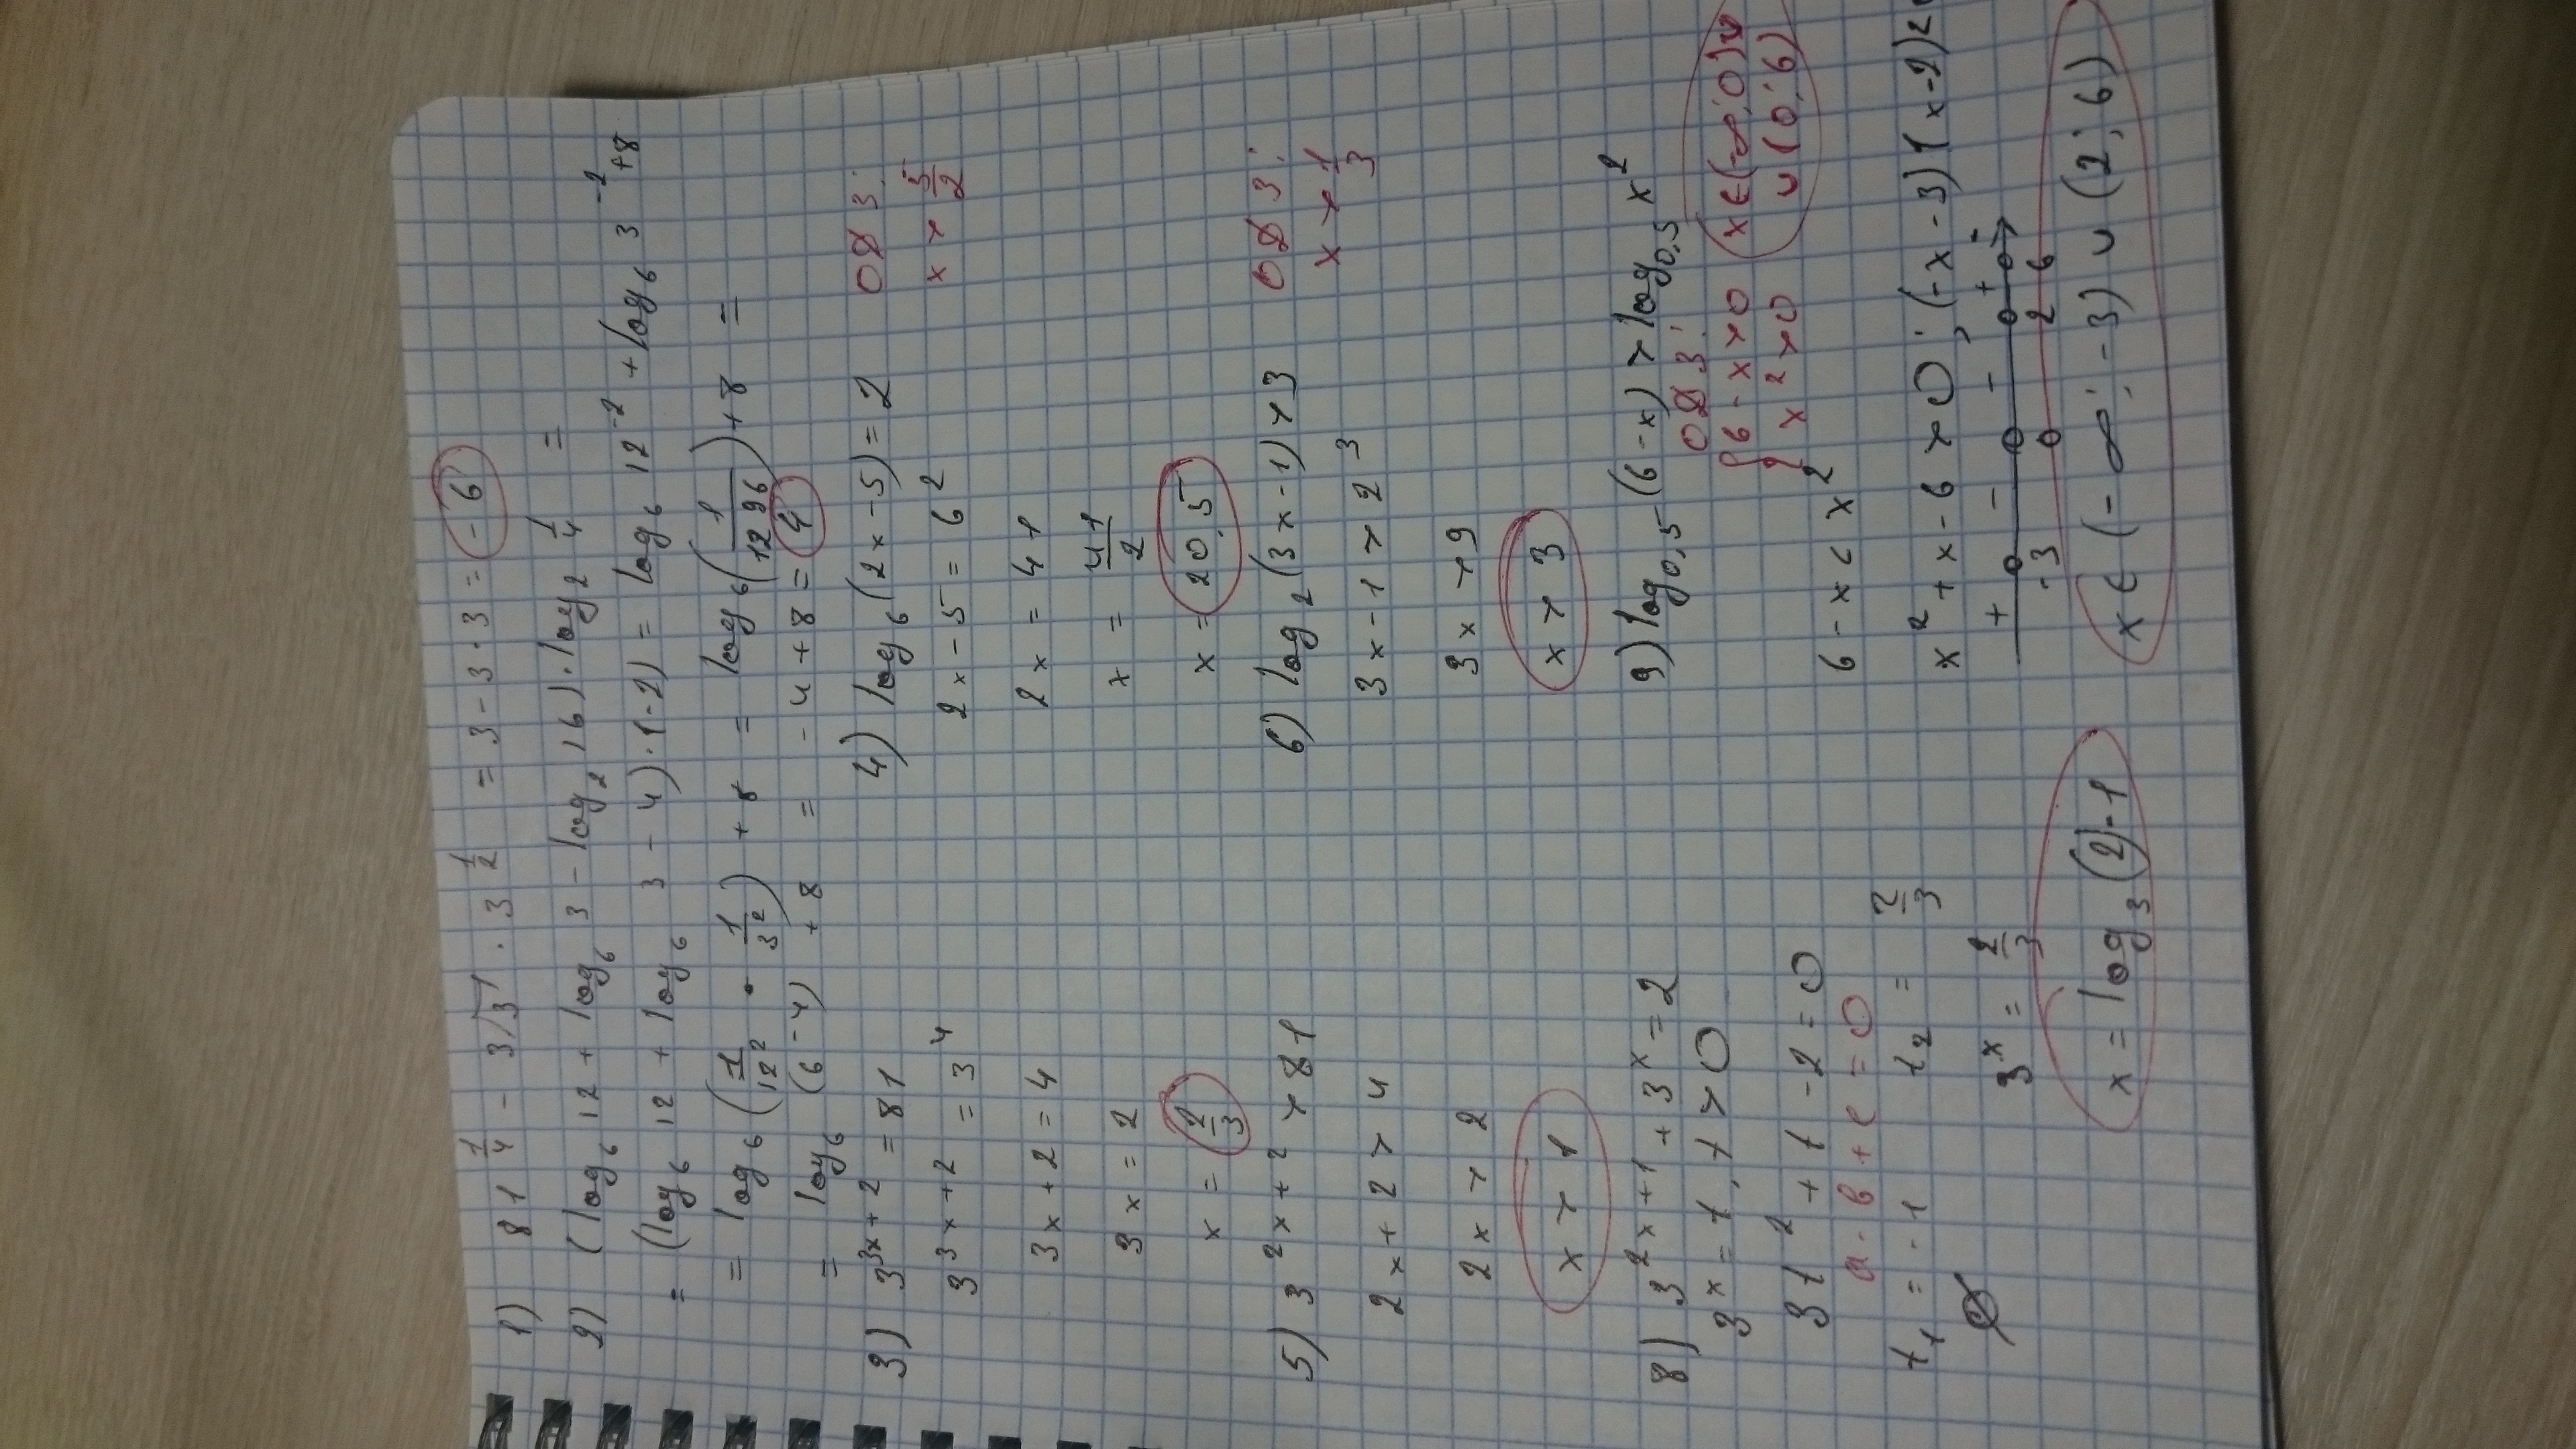 1) 81^{1/4} - 3√3 · 3^{1/2} = 3 - 3 · 3 = -6
2) (log_6 12 + log_6 3 - log_2 16) · log_2 1/4 =
= (log_6 12 + log_6 3 - 4) · (-2) = log_6 12^{-2} + log_6 3^{-2} + 8
= log_6 (1/12^2 · 1/3^2) + 8 = log_6 (1/1296) + 8 =
= log_6 (6^{-4}) + 8 = -4 + 8 = 4
3) 3^{3x+2} = 81
3^{3x+2} = 3^4
3x + 2 = 4
3x = 2
x = 2/3
4) log_6 (2x - 5) = 2
ОДЗ:
x > 5/2
2x - 5 = 6^2
2x = 41
x = 41/2
x = 20,5
5) 3^{2x+2} > 81
2x + 2 > 4
2x > 2
x > 1
6) log_2 (3x - 1) > 3
ОДЗ:
x > 1/3
3x - 1 > 2^3
3x > 9
x > 3
8) 3^{2x+1} + 3^x = 2
3^x = t, t > 0
3t^2 + t - 2 = 0
a - b + c = 0
t_1 = -1 t_2 = 2/3
∅ 3^x = 2/3
x = log_3 (2) - 1
9) log_{0,5} (6 - x) > log_{0,5} x^2
ОДЗ:
{ 6 - x > 0
x^2 > 0
x ∈ (-∞; 0) ∪
∪ (0; 6)
6 - x < x^2
x^2 + x - 6 > 0; (-x - 3)(x - 2) <
+ - - + -
-3 0 2 6
x ∈ (-∞; -3) ∪ (2; 6)